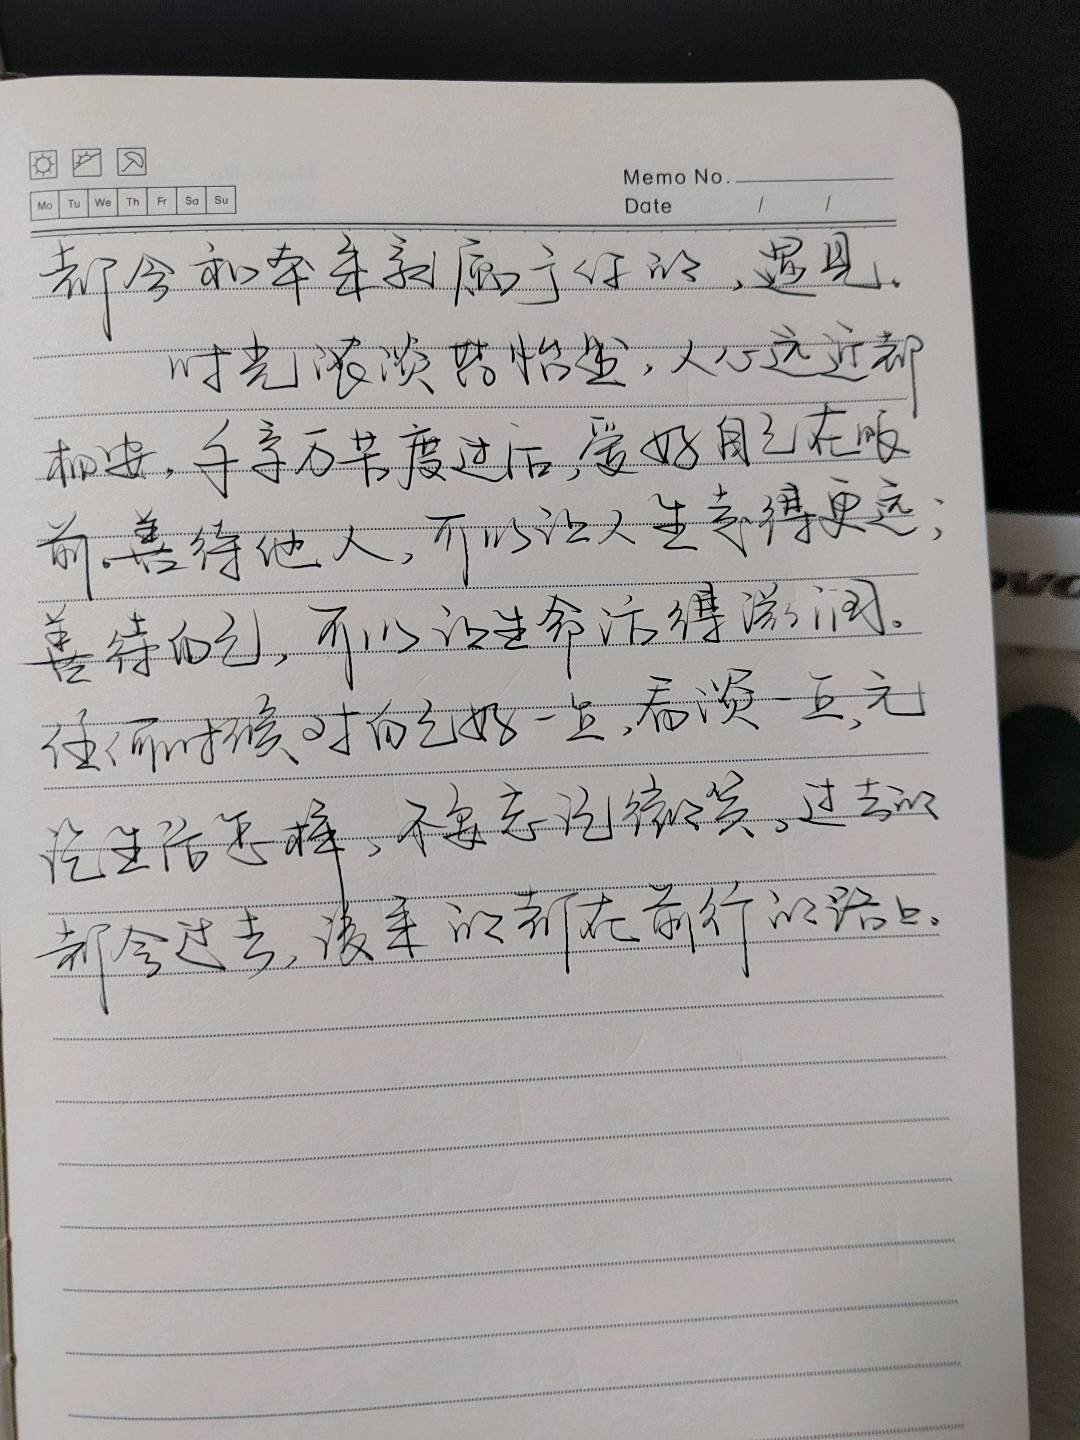 Memo No.
Mo Tu We Th Fr Sa Su
Date / /
都会和本来就属于你的，遇见。
时光浓淡皆怡然，人心远近都
相安，千辛万苦度过后，爱好自己在眼
前。善待他人，可以让人生走得更远；
善待自己，可以让生命活得滋润。
任何时候对自己好一点，看淡一点，无
论生活怎样，不要忘记微笑。过去的
都会过去，该来的都在前行的路上。